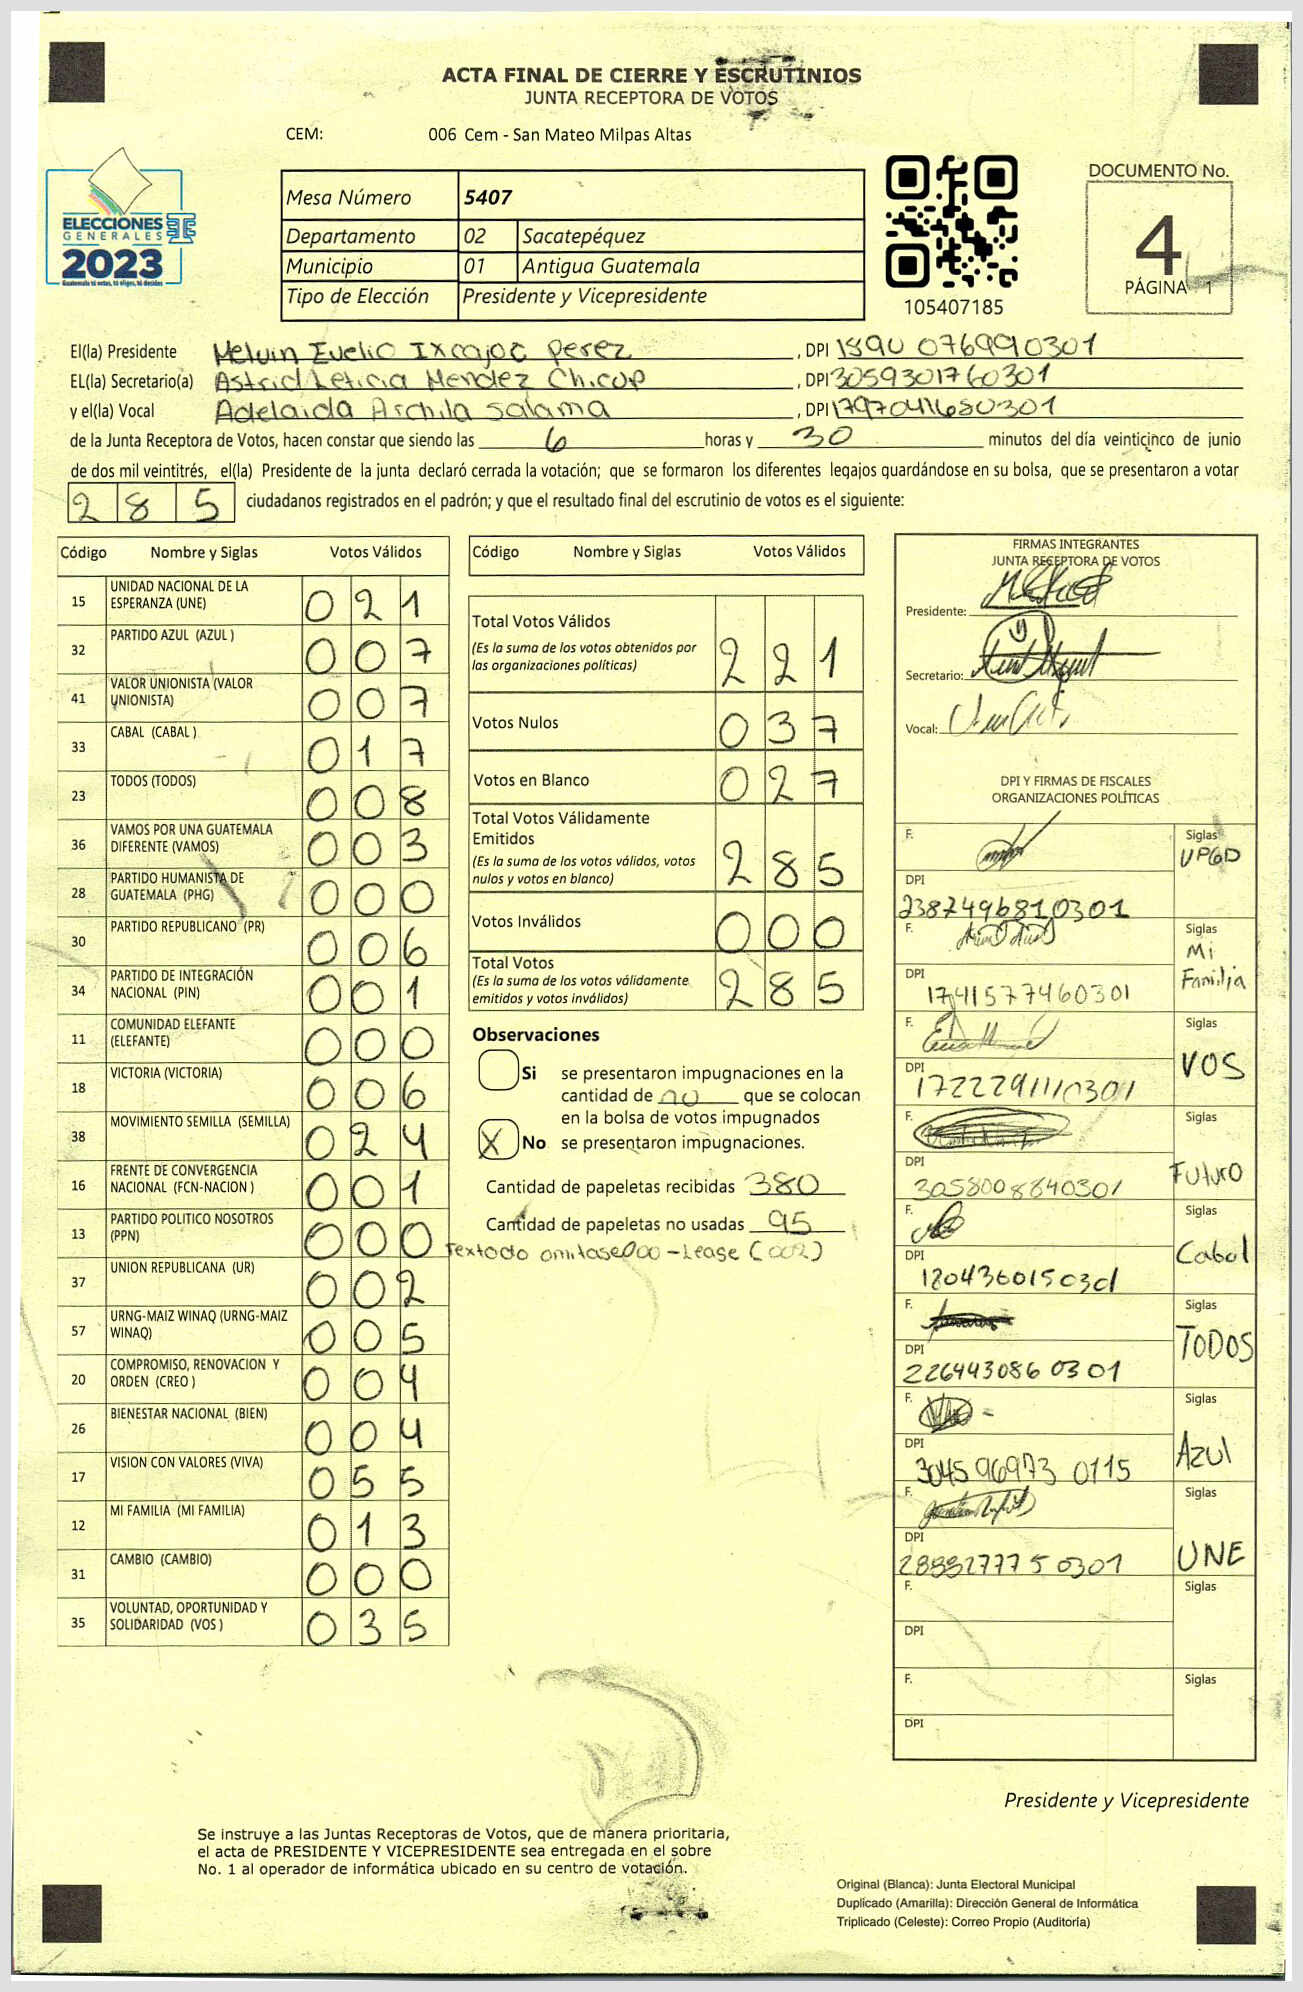 ACTA FINAL DE CIERRE Y ESCRUTINIOS
JUNTA RECEPTORA DE VOTOS
CEM: 006 Cem - San Mateo Milpas Altas
ELECCIONES
GENERALES
2023
Guatemala tú votas, tú eliges, tú decides
Mesa Número 5407
Departamento 02 Sacatepéquez
Municipio 01 Antigua Guatemala
Tipo de Elección Presidente y Vicepresidente
105407185
DOCUMENTO No.
4
PÁGINA 1
El(la) Presidente Melvin Evelio Ixcajoc Perez, DPI 1890 076990301
EL(la) Secretario(a) Astrid Leticia Mendez Chicop, DPI 3059301760301
y el(la) Vocal Adelaida Archila Salama, DPI 1797041680301
de la Junta Receptora de Votos, hacen constar que siendo las 6 horas y 30 minutos del día veinticinco de junio
de dos mil veintitrés, el(la) Presidente de la junta declaró cerrada la votación; que se formaron los diferentes legajos guardándose en su bolsa, que se presentaron a votar
285 ciudadanos registrados en el padrón; y que el resultado final del escrutinio de votos es el siguiente:
Código Nombre y Siglas Votos Válidos
15 UNIDAD NACIONAL DE LA ESPERANZA (UNE) 021
32 PARTIDO AZUL (AZUL ) 007
41 VALOR UNIONISTA (VALOR UNIONISTA) 007
33 CABAL (CABAL ) 017
23 TODOS (TODOS) 008
36 VAMOS POR UNA GUATEMALA DIFERENTE (VAMOS) 003
28 PARTIDO HUMANISTA DE GUATEMALA (PHG) 000
30 PARTIDO REPUBLICANO (PR) 006
34 PARTIDO DE INTEGRACIÓN NACIONAL (PIN) 001
11 COMUNIDAD ELEFANTE (ELEFANTE) 000
18 VICTORIA (VICTORIA) 006
38 MOVIMIENTO SEMILLA (SEMILLA) 024
16 FRENTE DE CONVERGENCIA NACIONAL (FCN-NACION ) 001
13 PARTIDO POLITICO NOSOTROS (PPN) 000
37 UNION REPUBLICANA (UR) 002
57 URNG-MAIZ WINAQ (URNG-MAIZ WINAQ) 005
20 COMPROMISO, RENOVACION Y ORDEN (CREO ) 004
26 BIENESTAR NACIONAL (BIEN) 004
17 VISION CON VALORES (VIVA) 055
12 MI FAMILIA (MI FAMILIA) 013
31 CAMBIO (CAMBIO) 000
35 VOLUNTAD, OPORTUNIDAD Y SOLIDARIDAD (VOS ) 035
Código Nombre y Siglas Votos Válidos
Total Votos Válidos 221
(Es la suma de los votos obtenidos por
las organizaciones políticas)
Votos Nulos 037
Votos en Blanco 027
Total Votos Válidamente
Emitidos 285
(Es la suma de los votos válidos, votos
nulos y votos en blanco)
Votos Inválidos 000
Total Votos 285
(Es la suma de los votos válidamente
emitidos y votos inválidos)
Observaciones
Si se presentaron impugnaciones en la
cantidad de no que se colocan
en la bolsa de votos impugnados
X No se presentaron impugnaciones.
Cantidad de papeletas recibidas 380
Cantidad de papeletas no usadas 95
omitase 000 - Lease (002)
FIRMAS INTEGRANTES
JUNTA RECEPTORA DE VOTOS
Presidente:
Secretario:
Vocal:
DPI Y FIRMAS DE FISCALES
ORGANIZACIONES POLÍTICAS
F. Siglas UPGD
DPI 2387496810301
F. Siglas Mi Familia
DPI 1741577460301
F. Siglas VOS
DPI 1722291110301
F. Siglas Futuro
DPI 3058008840301
F. Siglas Cabal
DPI 1204360150301
F. Siglas TODOS
DPI 226443086 0301
F. Siglas Azul
DPI 304596973 0115
F. Siglas UNE
DPI 288827775 0301
F. Siglas
DPI
F. Siglas
DPI
Presidente y Vicepresidente
Se instruye a las Juntas Receptoras de Votos, que de manera prioritaria,
el acta de PRESIDENTE Y VICEPRESIDENTE sea entregada en el sobre
No. 1 al operador de informática ubicado en su centro de votación.
Original (Blanca): Junta Electoral Municipal
Duplicado (Amarilla): Dirección General de Informática
Triplicado (Celeste): Correo Propio (Auditoría)